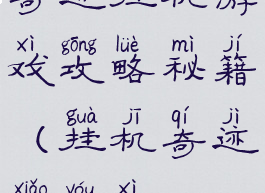 奇迹挂机游
xì gōng lüè mì jí
戏攻略秘籍
guà jī qí jì
(挂机奇迹
xiǎo yóu xì